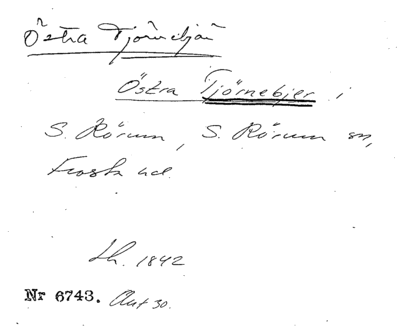 Östra Tjörnebjär
Östra Tjörnebjer i
S. Rörum, S. Rörum sn,
Frosta hd.
Lh. 1842
Nr 6743. Avt 30.